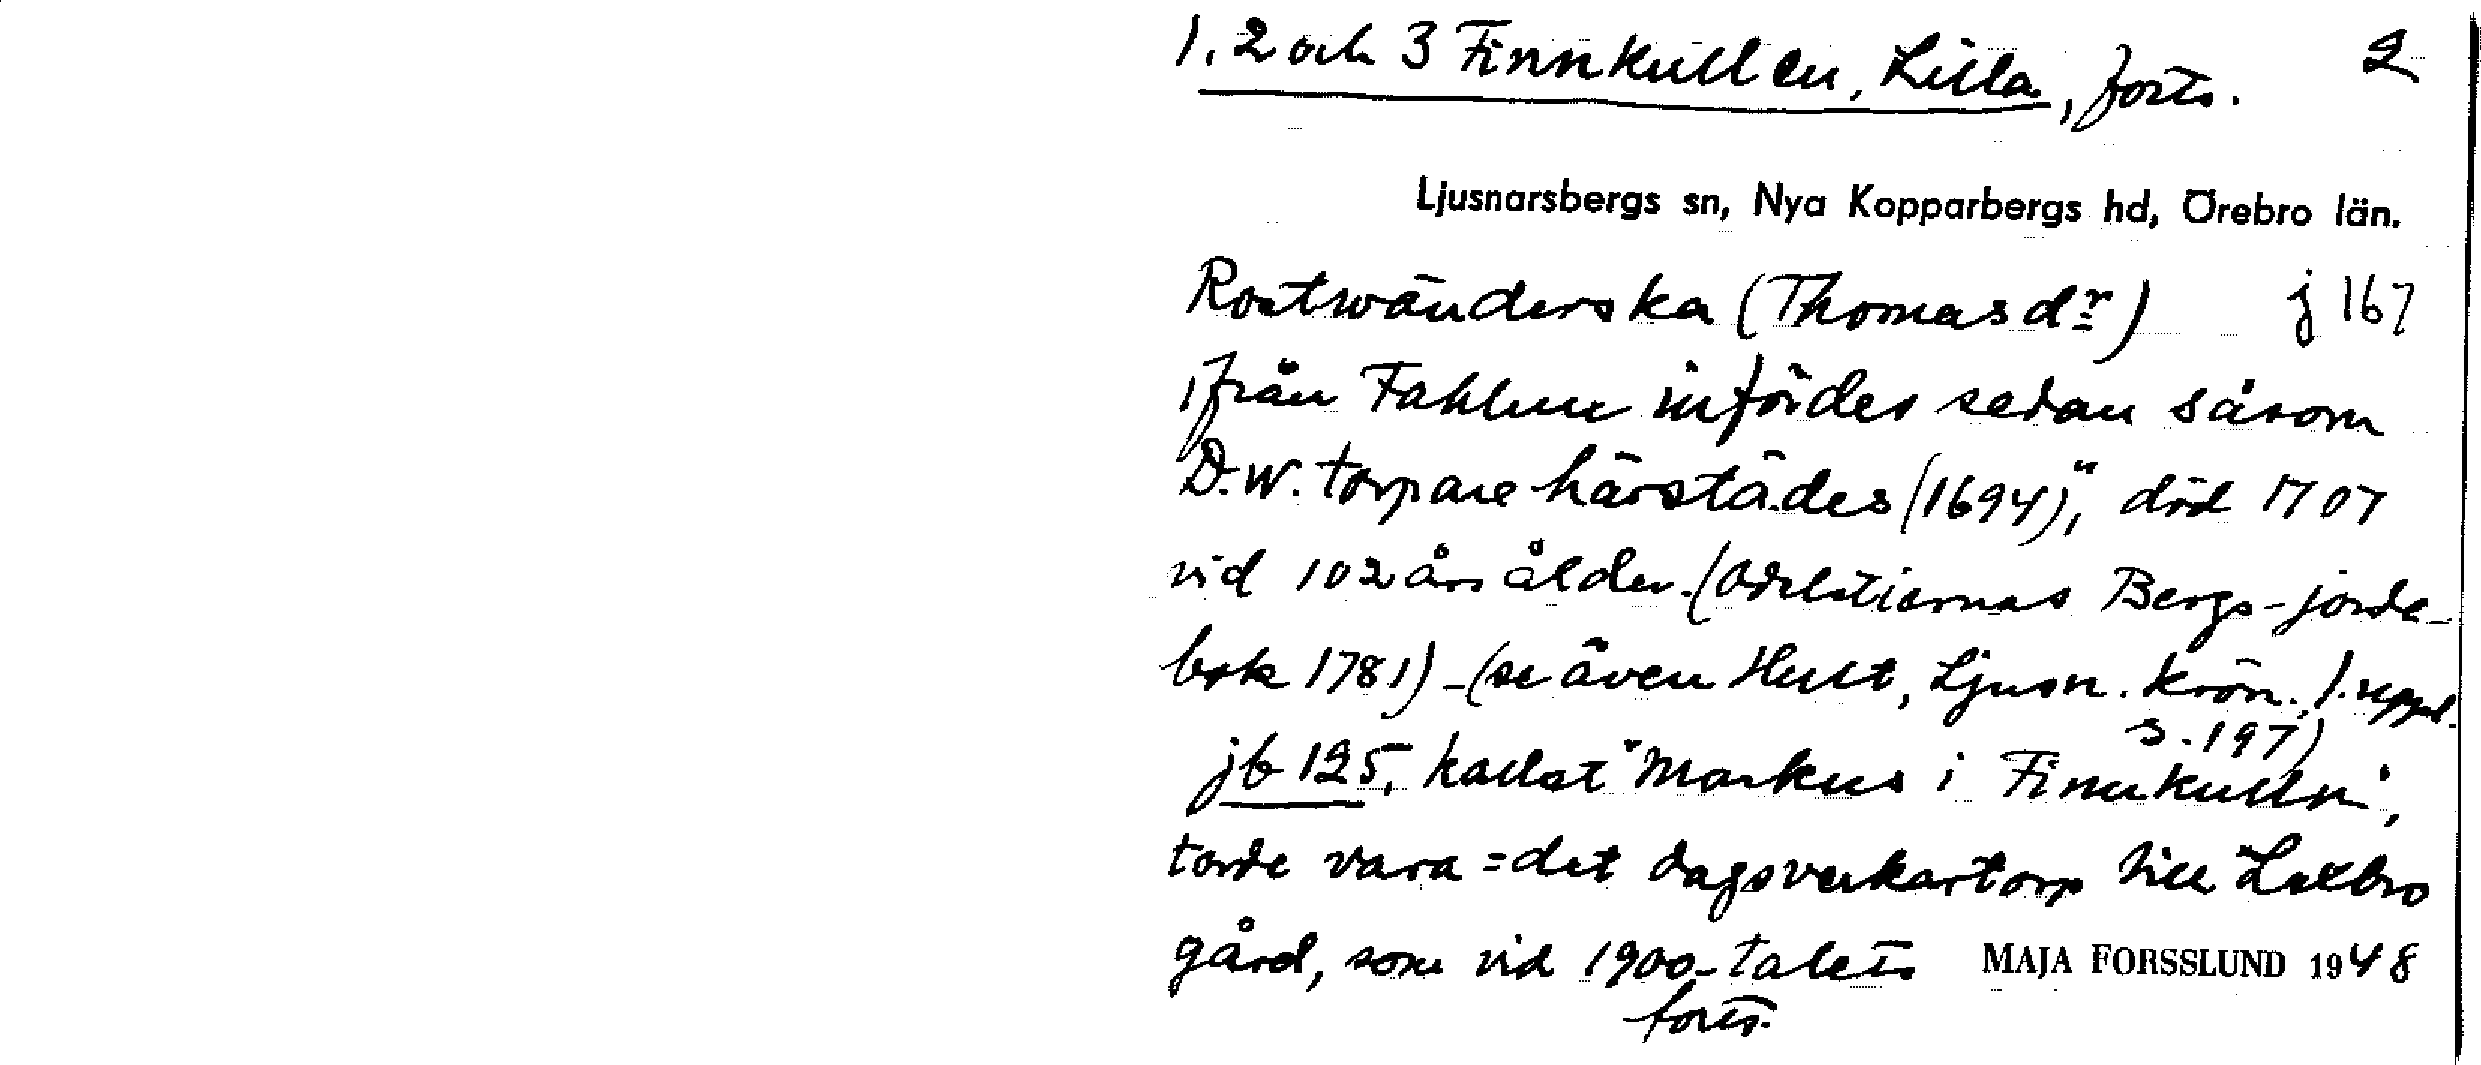 1, 2 och 3 Finnkullen, Lilla, forts. 2
Ljusnarsbergs sn, Nya Kopparbergs hd, Örebro län.
Rostwänderska (Thomasdr) j 167
ifrån Fahlun infördes sedan såsom
D.W. torpare härstädes (1694)", död 1707
vid 102 års ålder. (Odelstiernas Bergs-jorde-
bok 1781) - (se även Hult, Ljusn. krön., 1. uppl.
s. 197)
jb 125, kallat "Markus i Finnkulln",
torde vara = det dagsverkartorp till Laxbro
gård, som vid 1900-talets MAJA FORSSLUND 1948
forts.